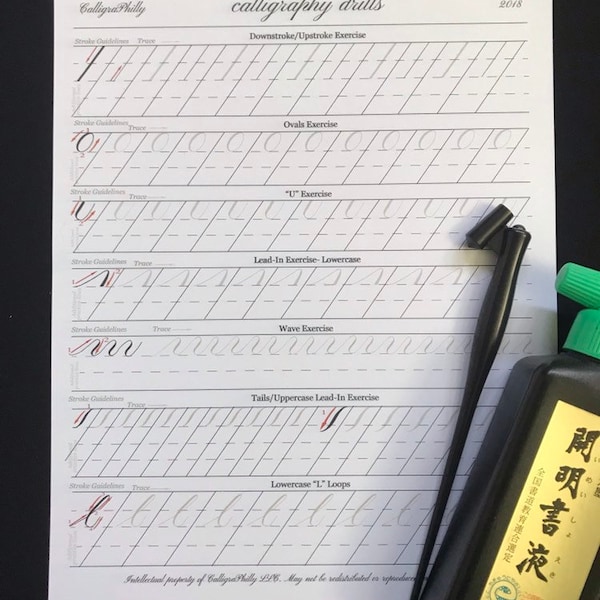 CalligraPhilly
calligraphy drills
2018
Downstroke/Upstroke Exercise
Stroke Guidelines
Trace
Ovals Exercise
Stroke Guidelines
Trace
"U" Exercise
Stroke Guidelines
Trace
Lead-In Exercise- Lowercase
Stroke Guidelines
Trace
Wave Exercise
Stroke Guidelines
Trace
Tails/Uppercase Lead-In Exercise
Stroke Guidelines
Trace
Lowercase "L" Loops
Stroke Guidelines
Trace
Intellectual property of CalligraPhilly LLC. May not be redistributed or
開明書液
全国書道教育連合選定